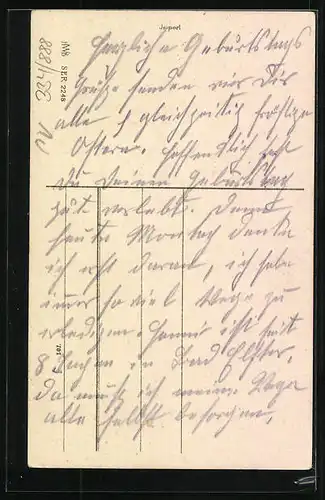 Import
WB SER. 2248
334/888
Herzliche Geburtstags
Grüße senden wir Dir
alle & gleichzeitig fröhliche
Ostern. Hoffentlich hast
Du Deinen Geburtstag
gut verlebt. Denn
heute Montag denke
ich erst daran, ich habe
immer so viel Wege zu
erledigen. Hanni ist seit
8 Tagen in Bad Elster,
da muß ich meine Wege
alle selbst besorgen,
781